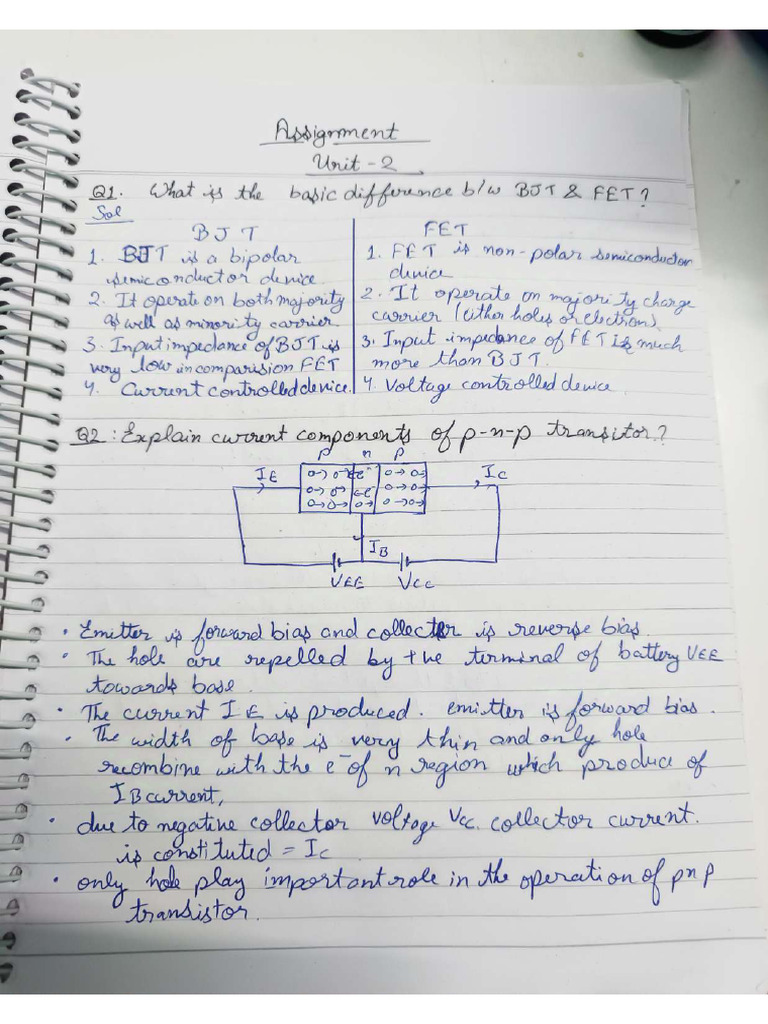 Assignment
Unit - 2
Q1. What is the basic difference b/w BJT & FET?
Sol
BJT
1. BJT is a bipolar
semiconductor device
2. It operate on both majority
as well as minority carrier
3. Input impedance of BJT is
very low in comparision FET
4. Current controlled device
FET
1. FET is non-polar semiconductor
device
2. It operate on majority charge
carrier (either holes or electron).
3. Input impedance of FET is much
more than BJT.
4. Voltage controlled device
Q2: Explain current components of p-n-p transitor?
p n p
IE IC
IB
VEE VCC
• Emitter is forward bias and collector is reverse bias.
• The hole are repelled by +ve terminal of battery VEE
towards base.
• The current IE is produced. emitter is forward bias.
• The width of base is very thin and only hole
recombine with the e- of n region which produce of
IB current,
• due to negative collector voltage Vcc. collector current.
is constituted = Ic
• only hole play important role in the operation of pnp
transistor.